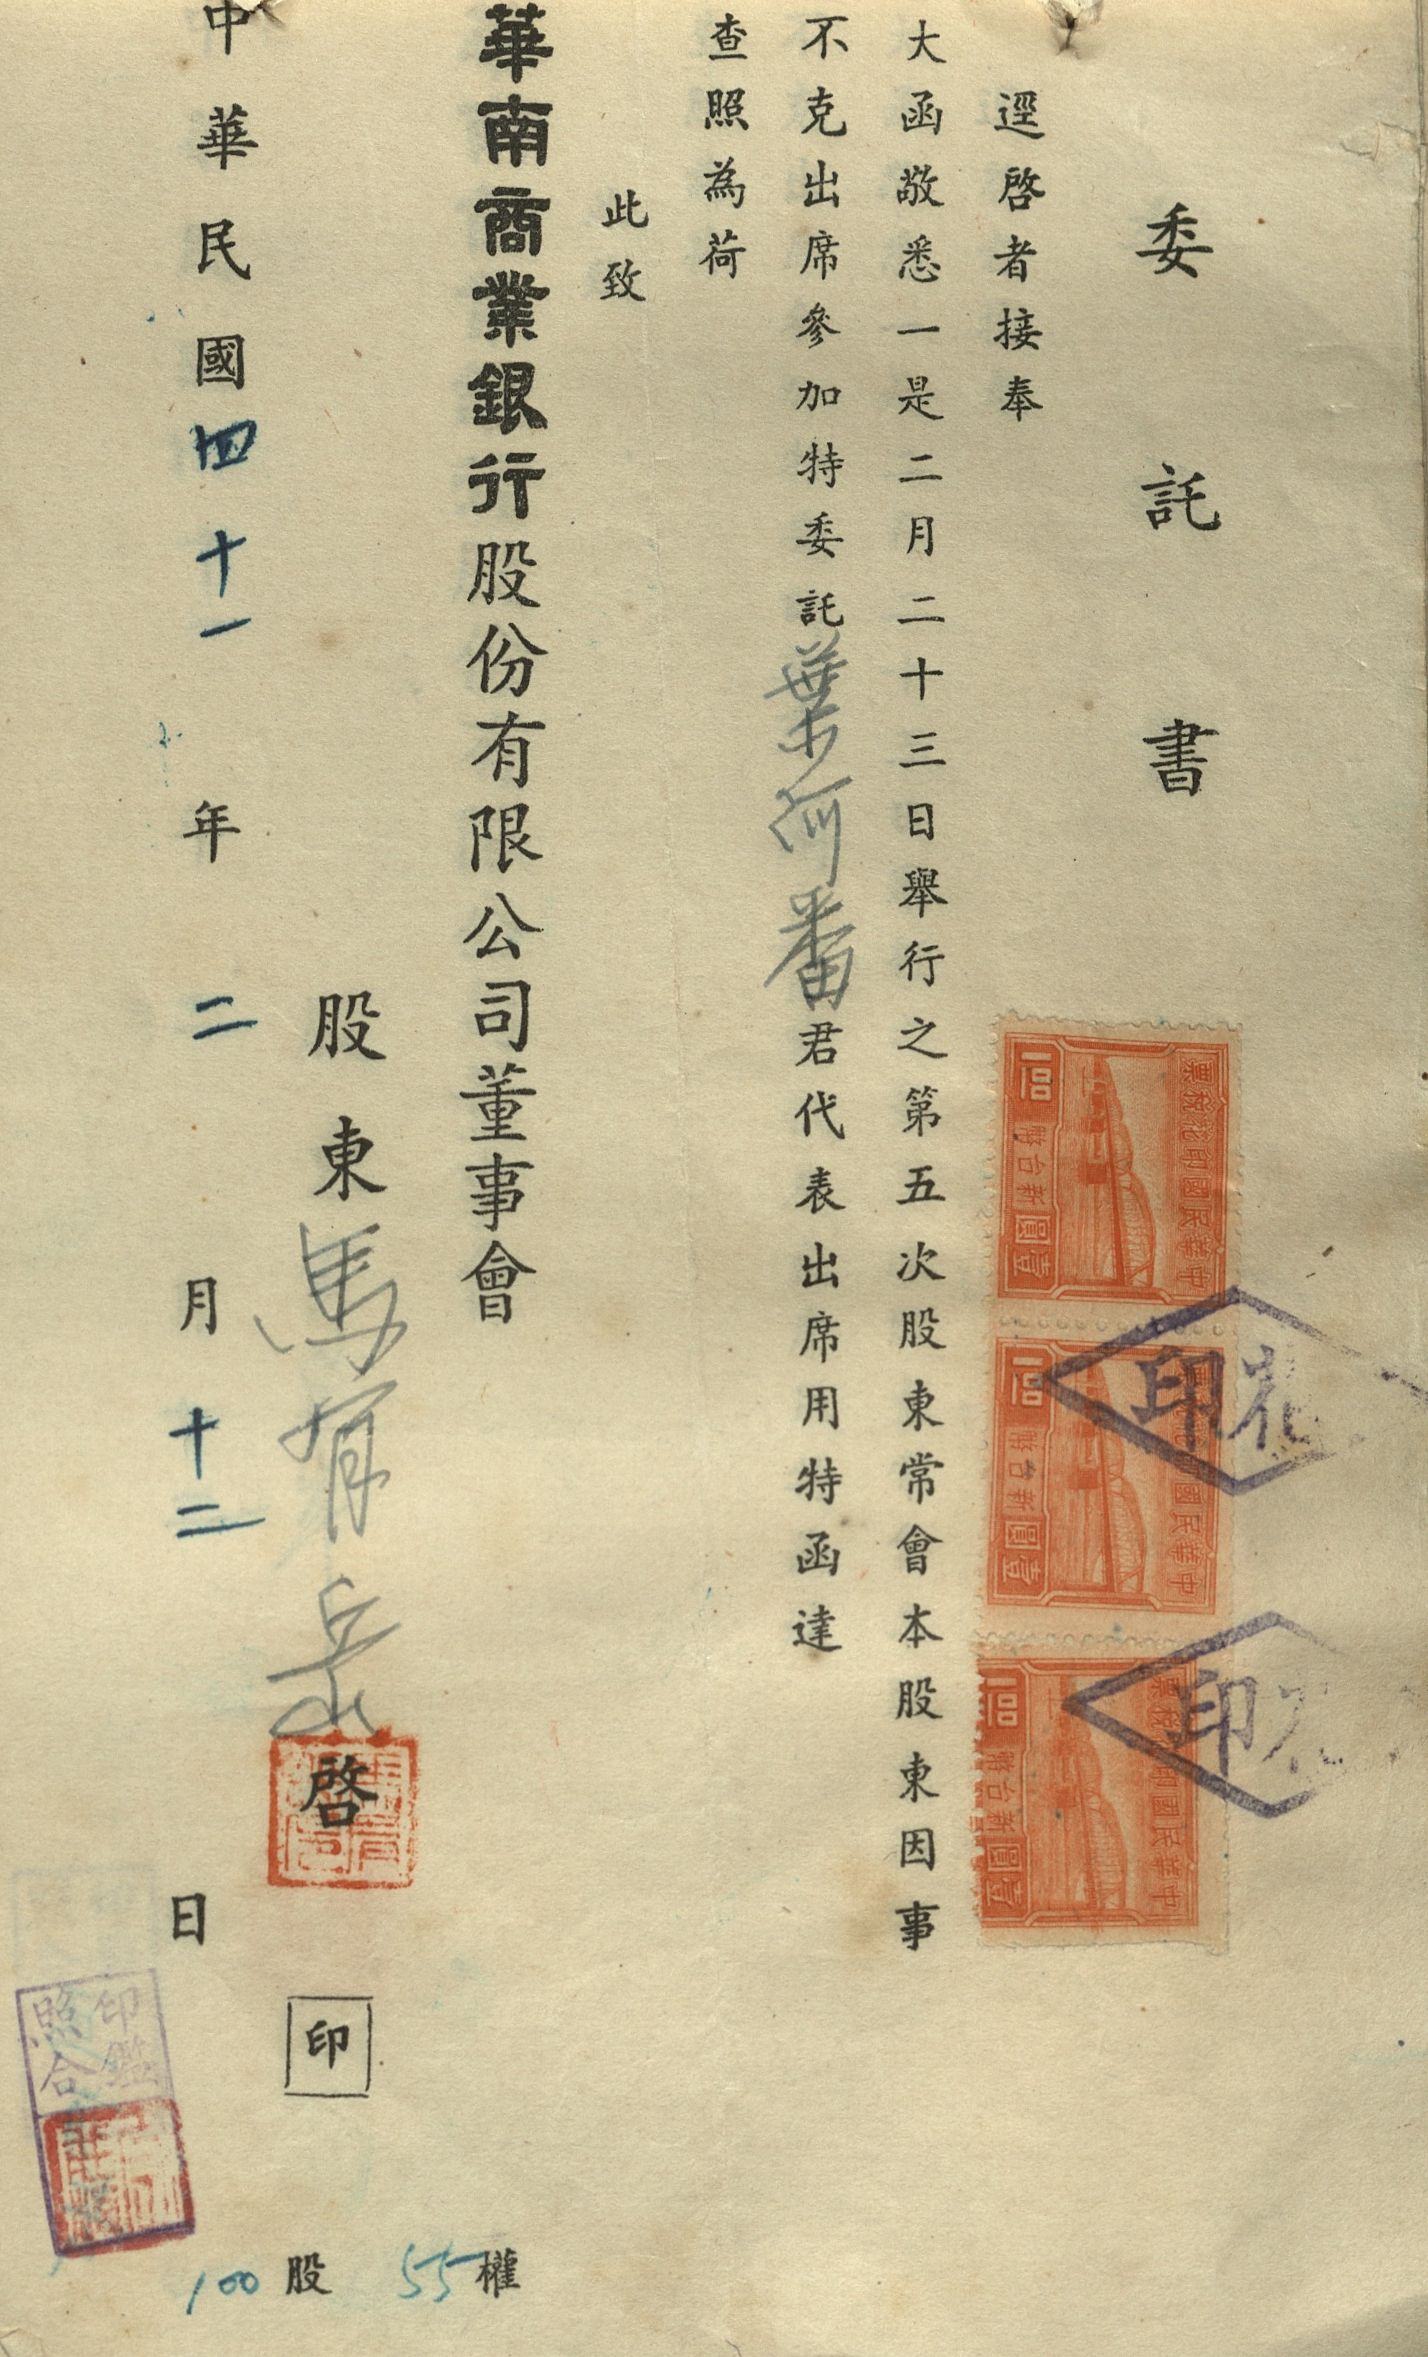 委託書
逕啓者接奉
大函敬悉一是二月二十三日舉行之第五次股東常會本股東因事
不克出席參加特委託葉阿番君代表出席用特函達
查照為荷
此致
華南商業銀行股份有限公司董事會
股東馬有岳啓 印
中華民國四十一年二月十二日
100股 55權
中華民國印花稅票
壹圓 新台幣
中華民國印花稅票
壹圓 新台幣
中華民國印花稅票
壹圓 新台幣
印花
印花
印鑑
照合